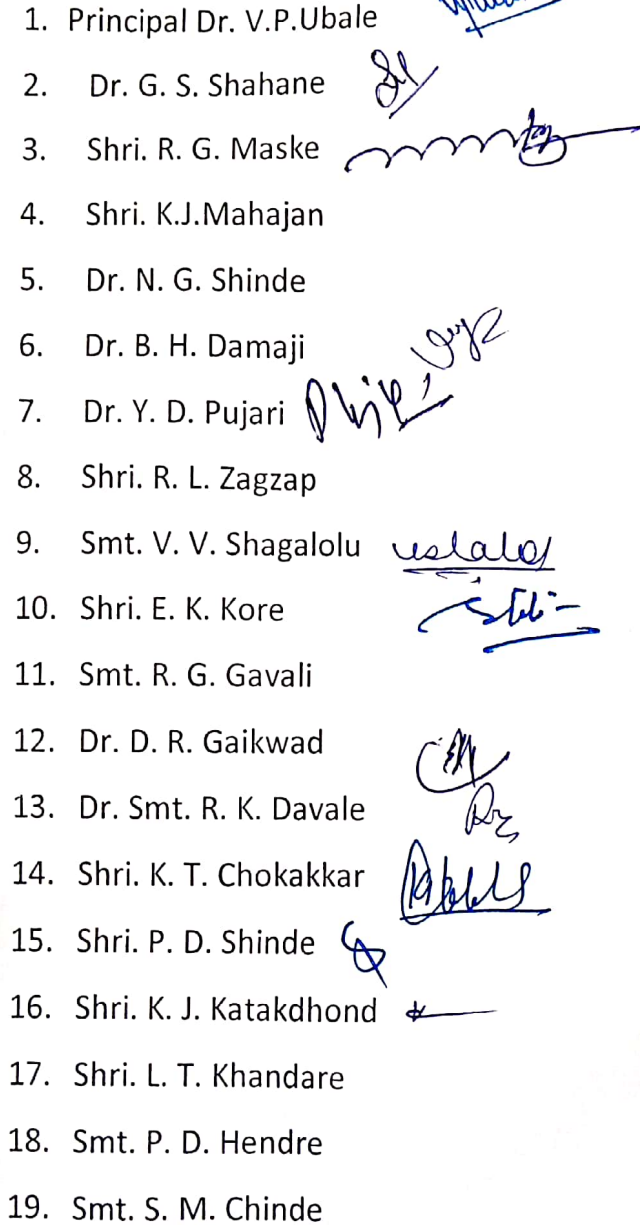 1. Principal Dr. V.P.Ubale
2. Dr. G. S. Shahane
3. Shri. R. G. Maske
4. Shri. K.J.Mahajan
5. Dr. N. G. Shinde
6. Dr. B. H. Damaji
7. Dr. Y. D. Pujari
8. Shri. R. L. Zagzap
9. Smt. V. V. Shagalolu
10. Shri. E. K. Kore
11. Smt. R. G. Gavali
12. Dr. D. R. Gaikwad
13. Dr. Smt. R. K. Davale
14. Shri. K. T. Chokakkar
15. Shri. P. D. Shinde
16. Shri. K. J. Katakdhond
17. Shri. L. T. Khandare
18. Smt. P. D. Hendre
19. Smt. S. M. Chinde